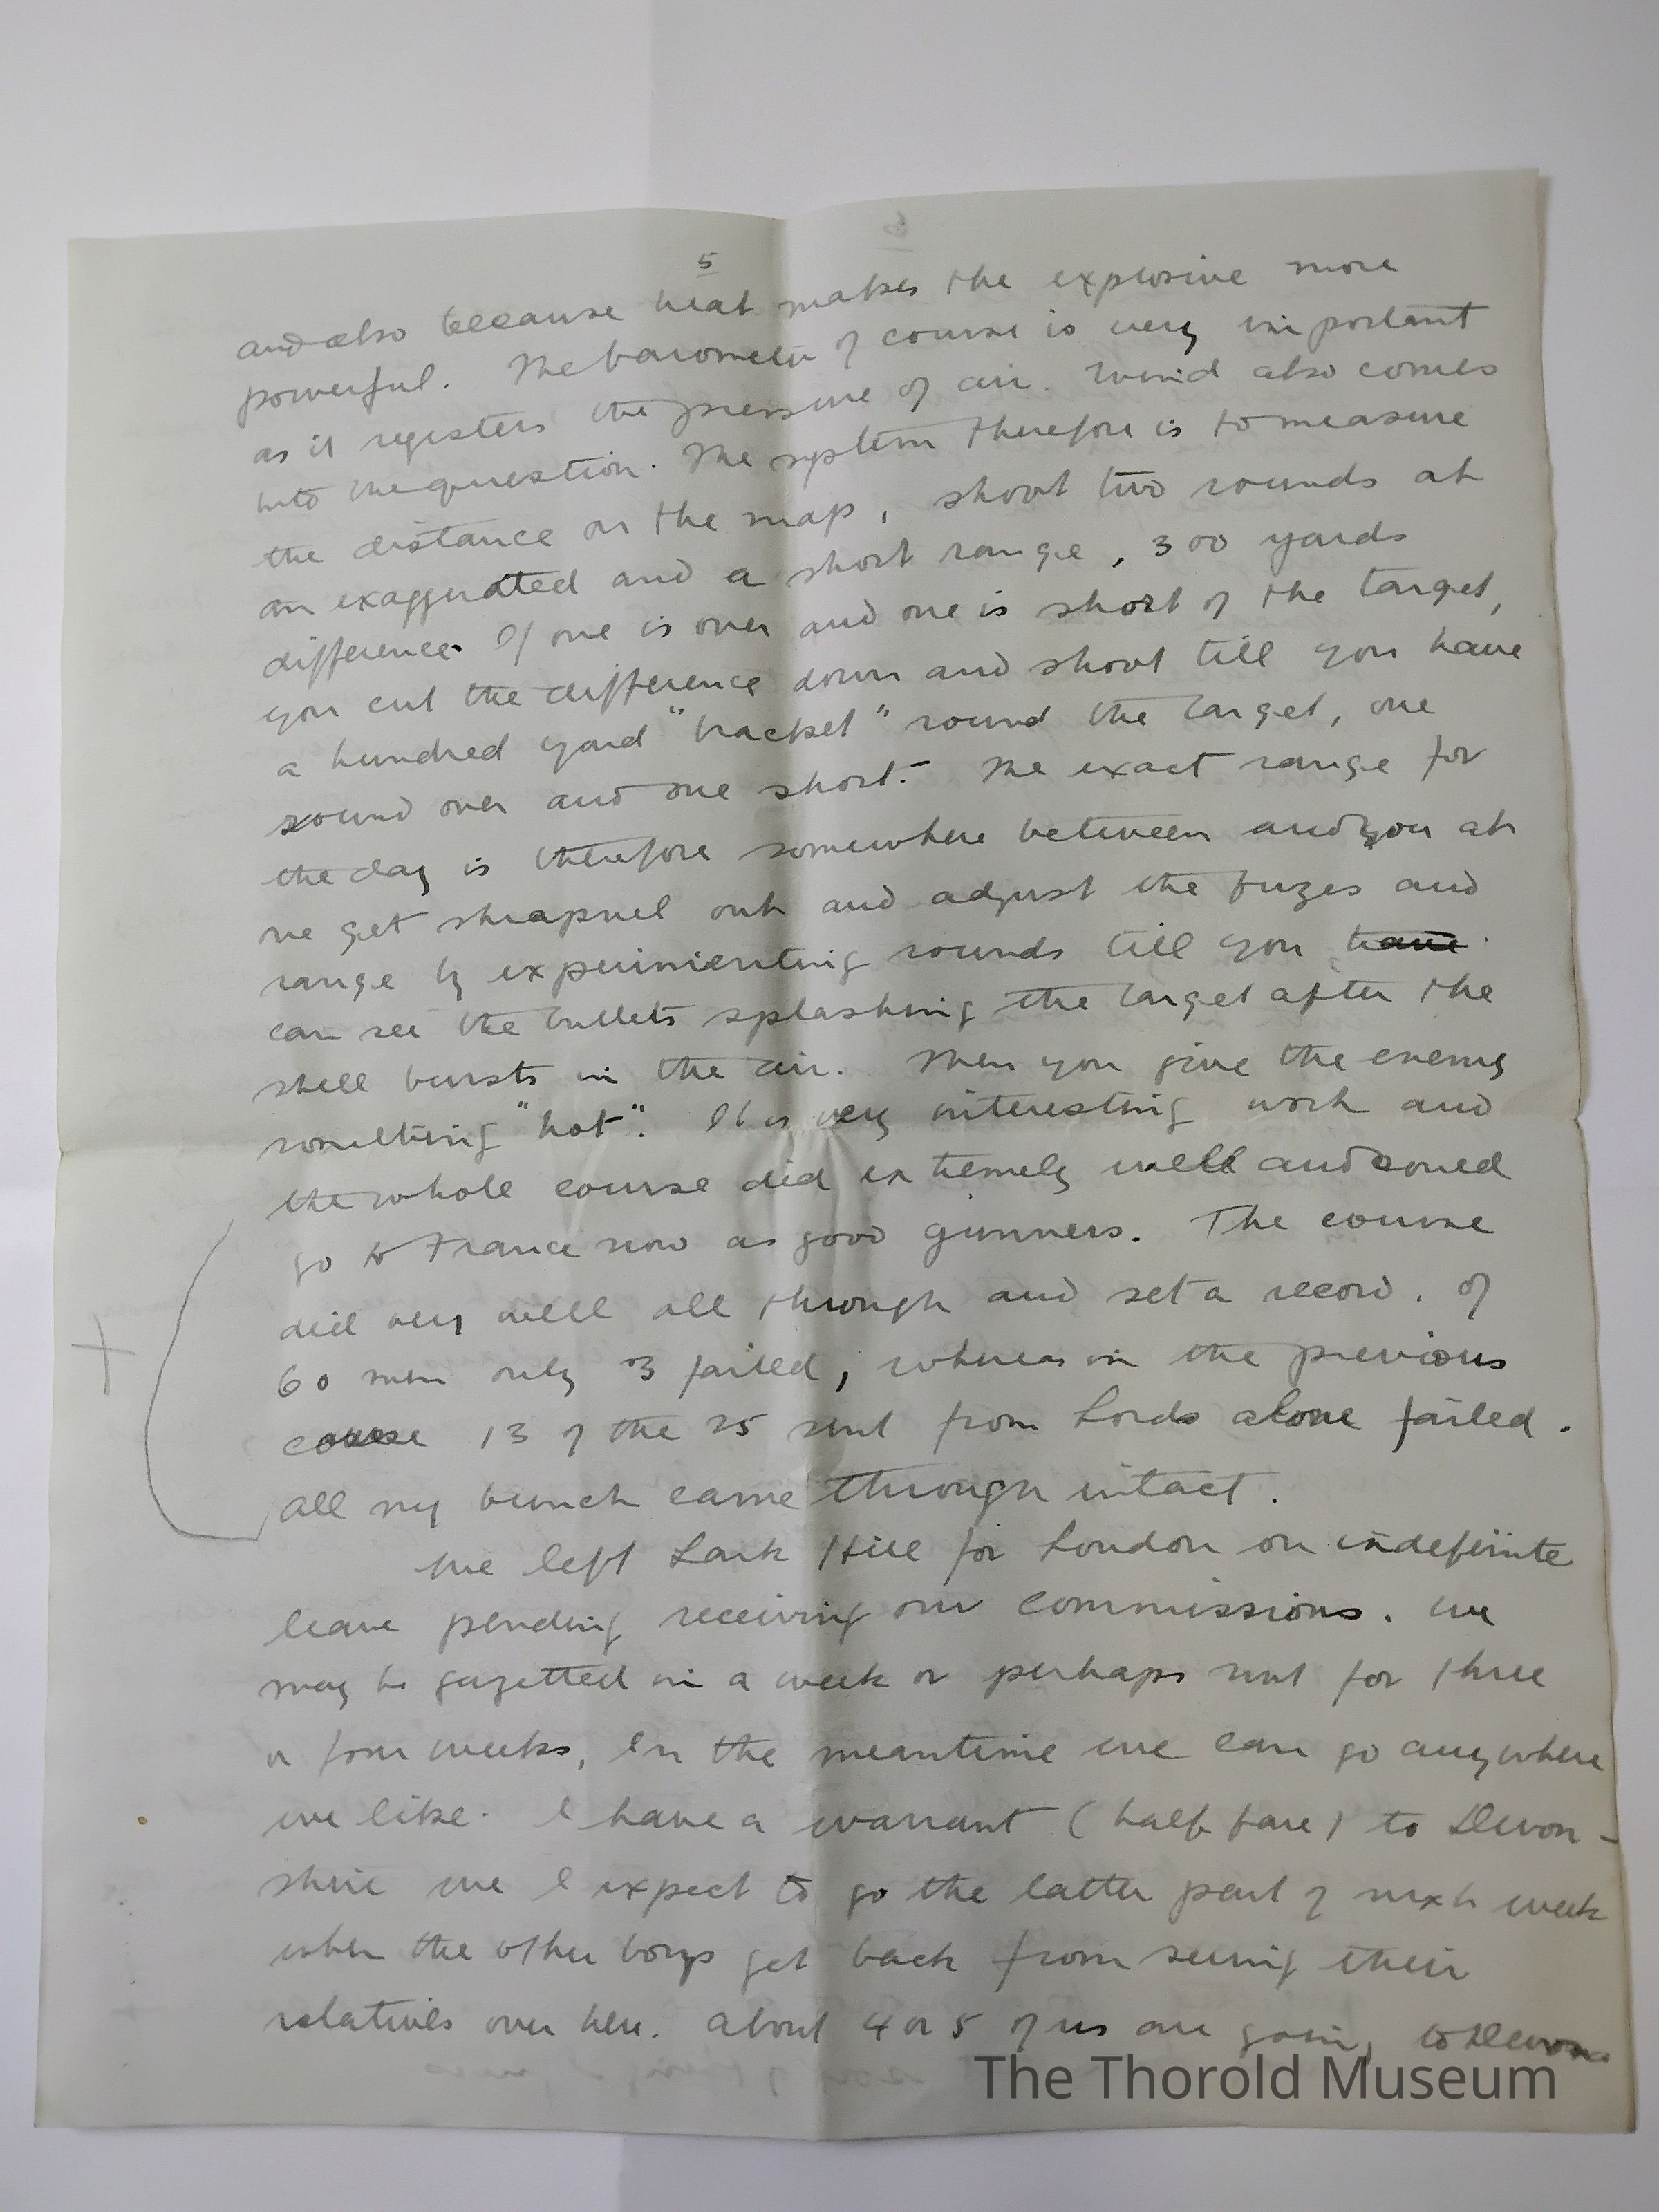 5
and also because heat makes the explosive more
powerful. The barometer of course is very important
as it registers the pressure of air. Wind also comes
into the question. The system therefore is to measure
the distance on the map, shoot two rounds at
an exaggerated and a short range, 300 yards
difference. If one is over and one is short of the target,
you cut the difference down and shoot till you have
a hundred yard "bracket" round the target, one
round over and one short.- The exact range for
the day is therefore somewhere between and you at
once get shrapnel out and adjust the fuzes and
range by experimenting rounds till you have
can see the bullets splashing the target after the
shell bursts in the air. Then you give the enemy
something "hot". It is very interesting work and
the whole course did extremely well and could
go to France now as good gunners. The course
did very well all through and set a record. Of
60 men only 3 failed, whereas in the previous
course 13 of the 25 sent from Lords alone failed.
All my bunch came through intact.
We left Lark Hill for London on indefinite
leave pending receiving our commissions. We
may be gazetted in a week or perhaps not for three
or four weeks, In the meantime we can go anywhere
we like. I have a warrant (half fare) to Devon-
shire we I expect to go the latter part of next week
when the other boys get back from seeing their
relatives over here. About 4 or 5 of us are going to Devon
The Thorold Museum